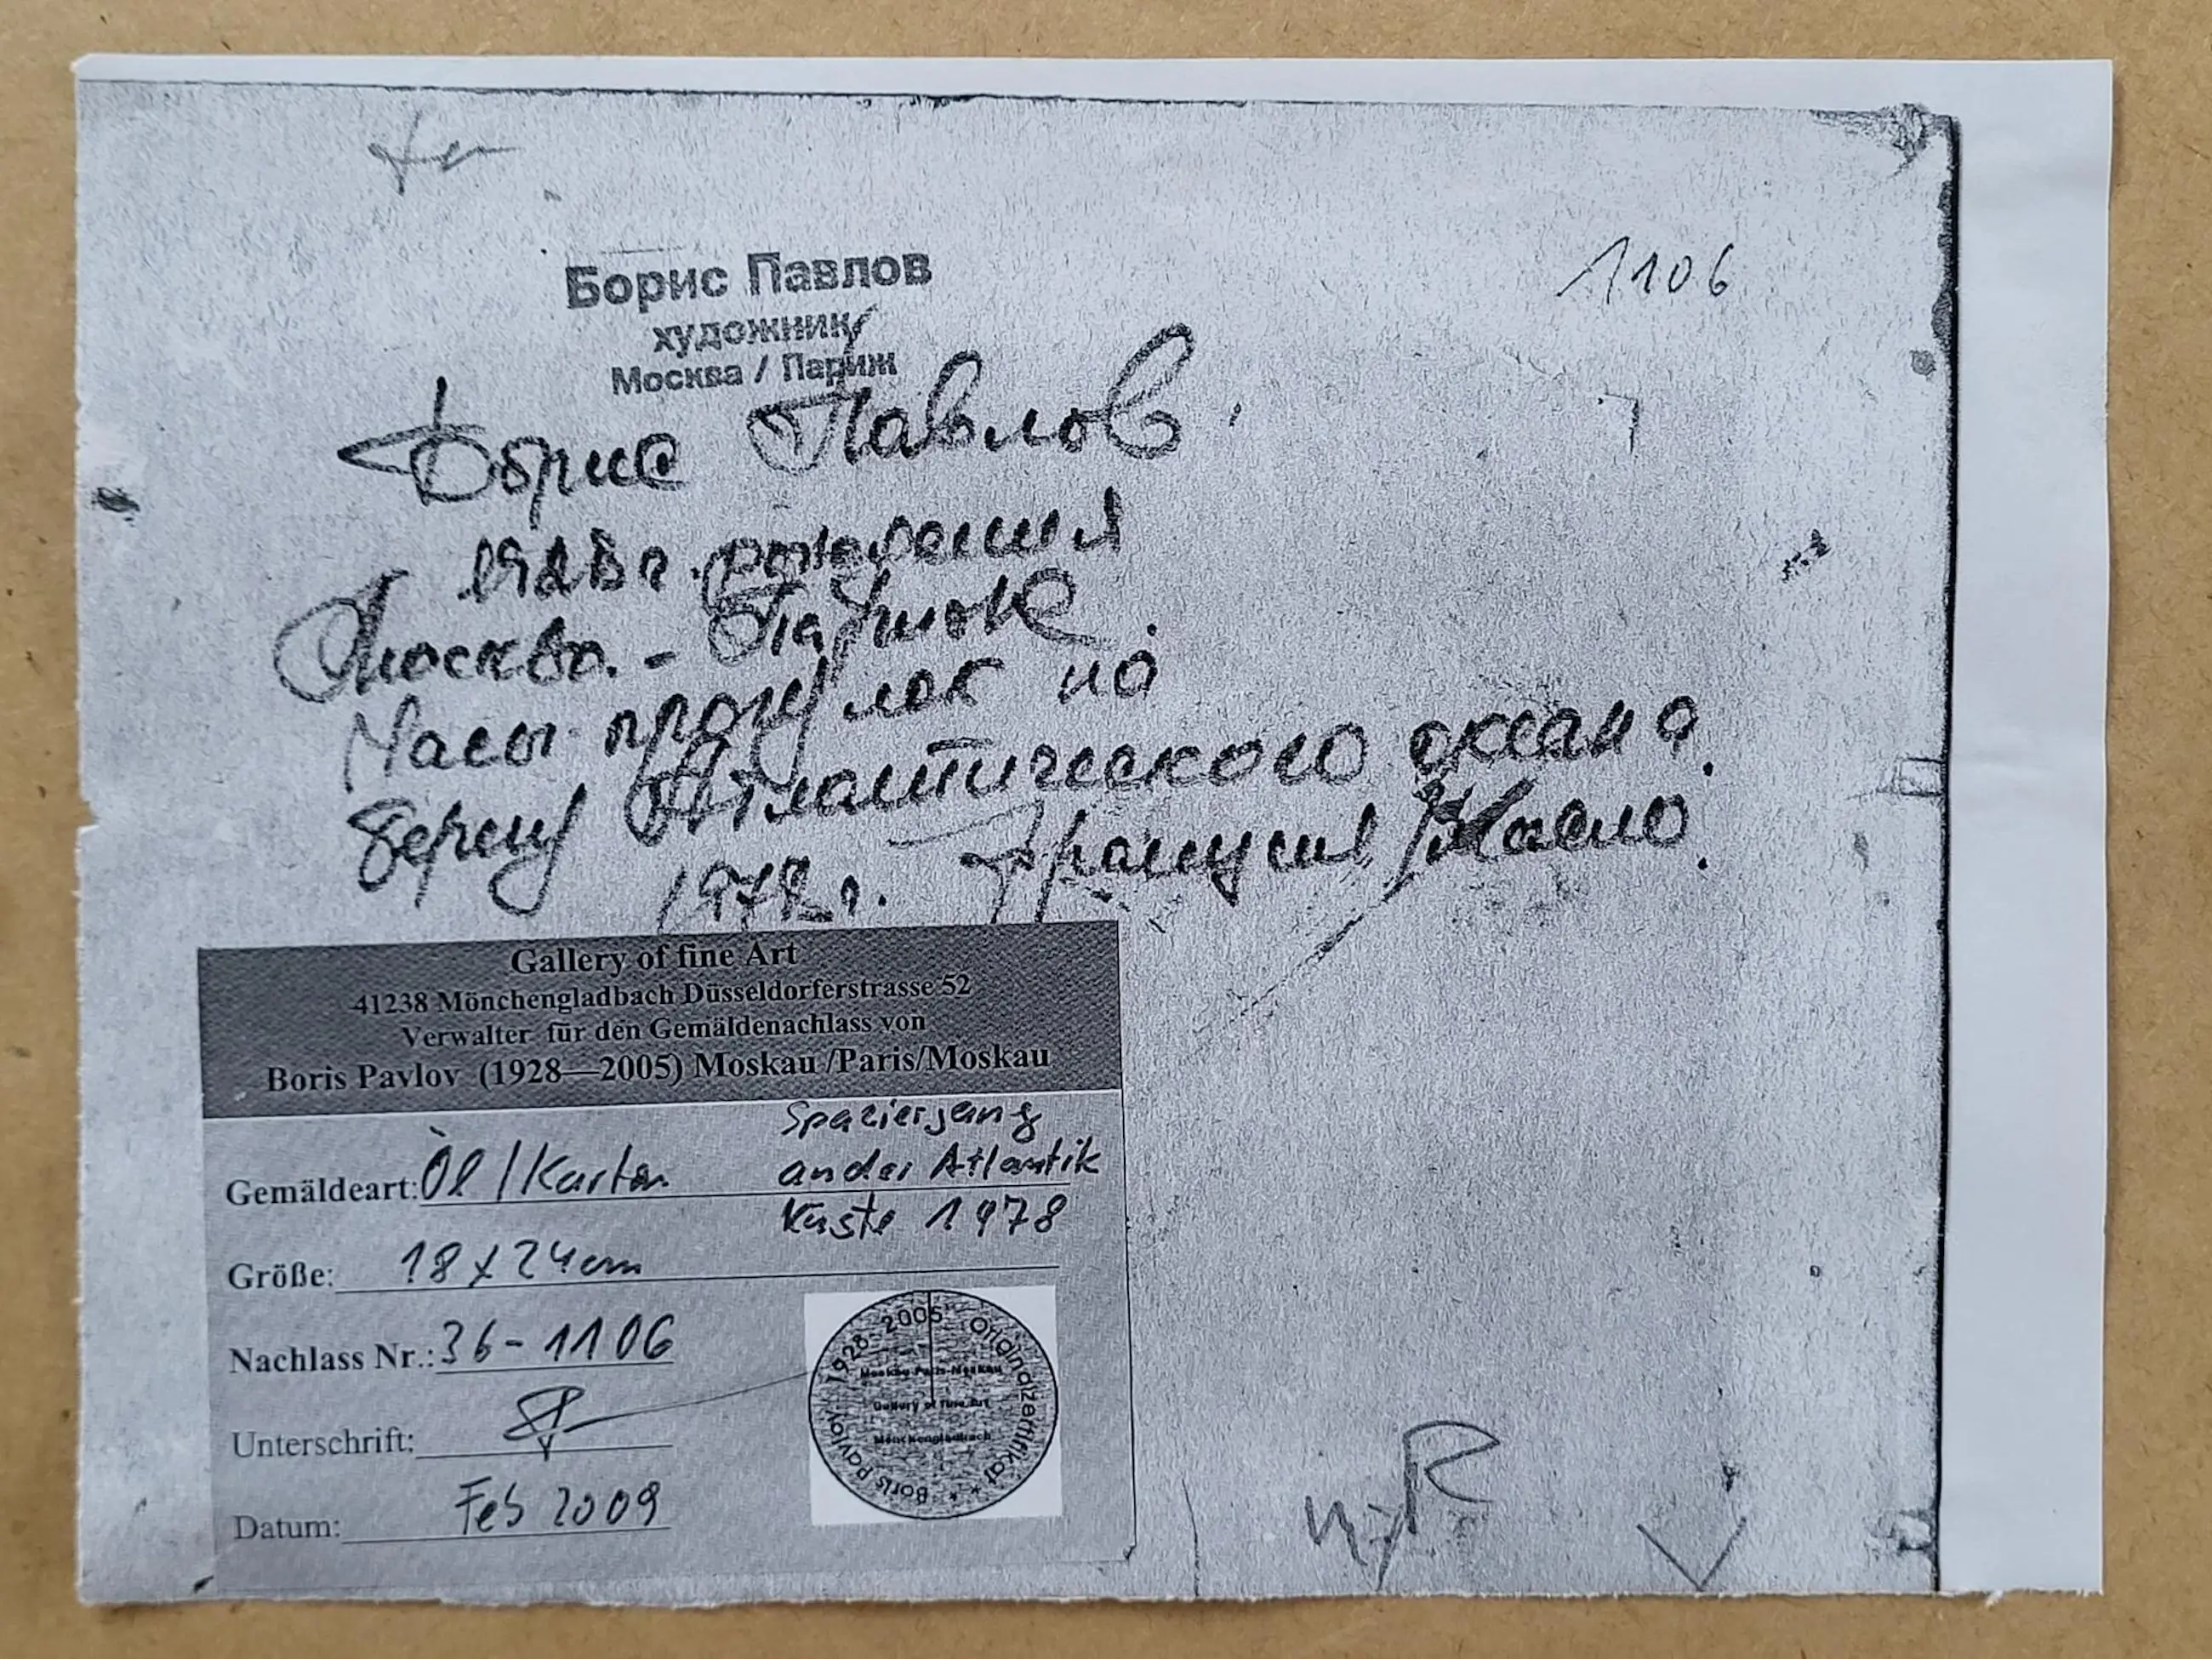 1106
Борис Павлов
художник
Москва / Париж
Борис Павлов.
рождения
Москва. - Париж.
Часы прогулок на
берегу Атлантического океана.
г. Франция Масло.
Gallery of fine Art
41238 Mönchengladbach Düsseldorferstrasse 52
Verwalter für den Gemäldenachlass von
Boris Pavlov (1928—2005) Moskau /Paris/Moskau
Spaziergang
an der Atlantik
Küste 1978
Gemäldeart: Öl / Karton
Größe: 18 x 24 cm
Nachlass Nr.: 36-1106
Unterschrift:
Datum: Feb 2009
Boris Pavlov 1928-2005 Originalzertifikat * *
Moskau Paris-Moskau
Gallery of fine Art
Mönchengladbach
R